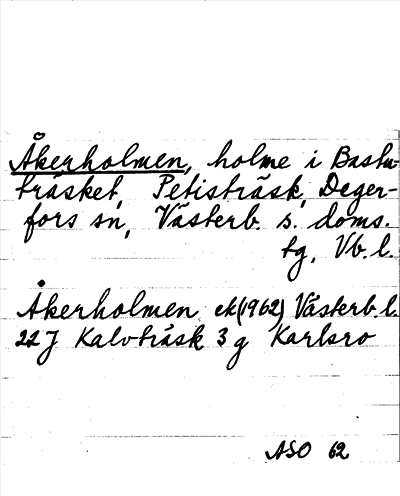 Åkerholmen, holme i Bastu-
träsket, Petisträsk, Deger-
fors sn, Västerb. s. doms.
tg, Vb. l.
Åkerholmen ek(1962) Västerb. l.
22 J Kalvträsk 3 g Karlsro
ASO 62